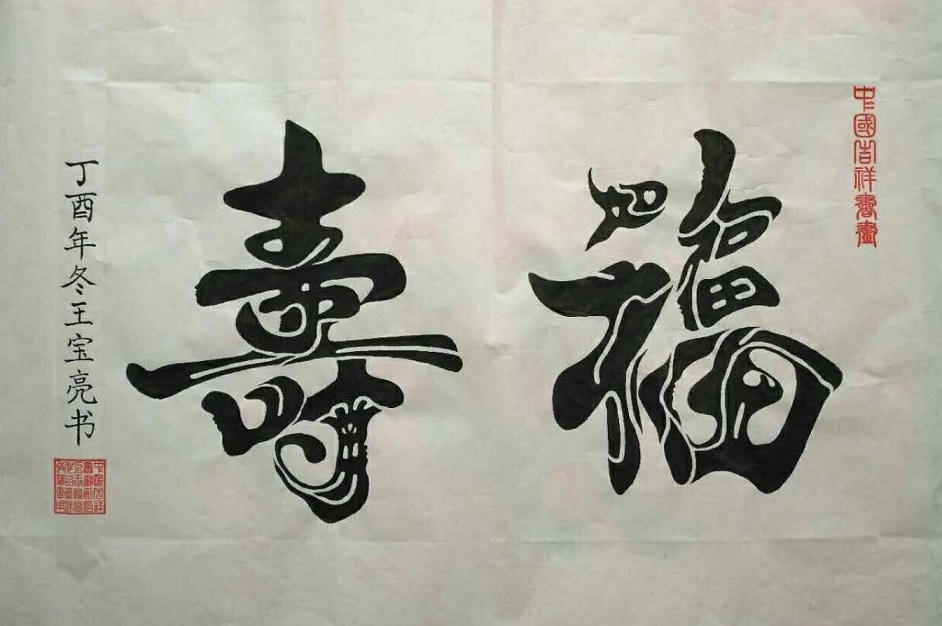 中國吉祥書畫
福壽
丁酉年冬王宝亮书